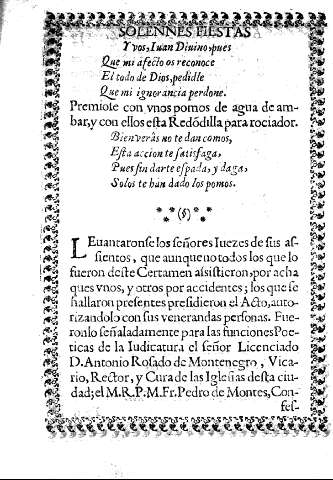 SOLENNES FIESTAS
Y vos, Iuan Diuino, pues
Que mi afecto os reconoce
El todo de Dios, pedidle
Que mi ignorancia perdone.
Premiole con vnos pomos de agua de am-
bar, y con ellos esta Redõdilla para rociador.
Bien verás no te dan comos,
Esta accion te satisfaga,
Pues sin darte espada, y daga,
Solos te han dado los pomos.
(§)
LEuantaronse los señores Iuezes de sus as-
sientos, que aunque no todos los que lo
fueron deste Certamen assistieron; por acha
ques vnos, y otros por accidentes; los que se
hallaron presentes presidieron el Acto, auto-
rizandolo con sus venerandas personas. Fue-
ronlo señaladamente para las funciones Poe-
ticas de la Iudicatura el señor Licenciado
D. Antonio Rosado de Montenegro, Vica-
rio, Rector, y Cura de las Iglesias desta ciu-
dad; el M.R.P.M.Fr. Pedro de Montes, Con-
fes-